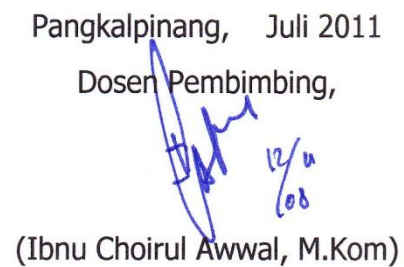 Pangkalpinang, Juli 2011
Dosen Pembimbing,
(Ibnu Choirul Awwal, M.Kom)